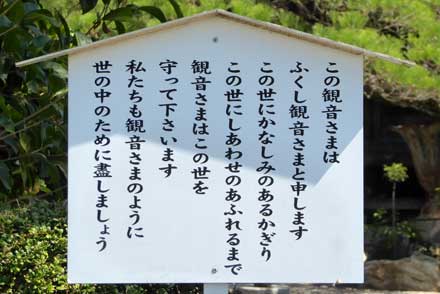 この観音さまは
ふくし観音さまと申します
この世にかなしみのあるかぎり
この世にしあわせのあふれるまで
観音さまはこの世を
守って下さいます
私たちも観音さまのように
世の中のために盡しましょう